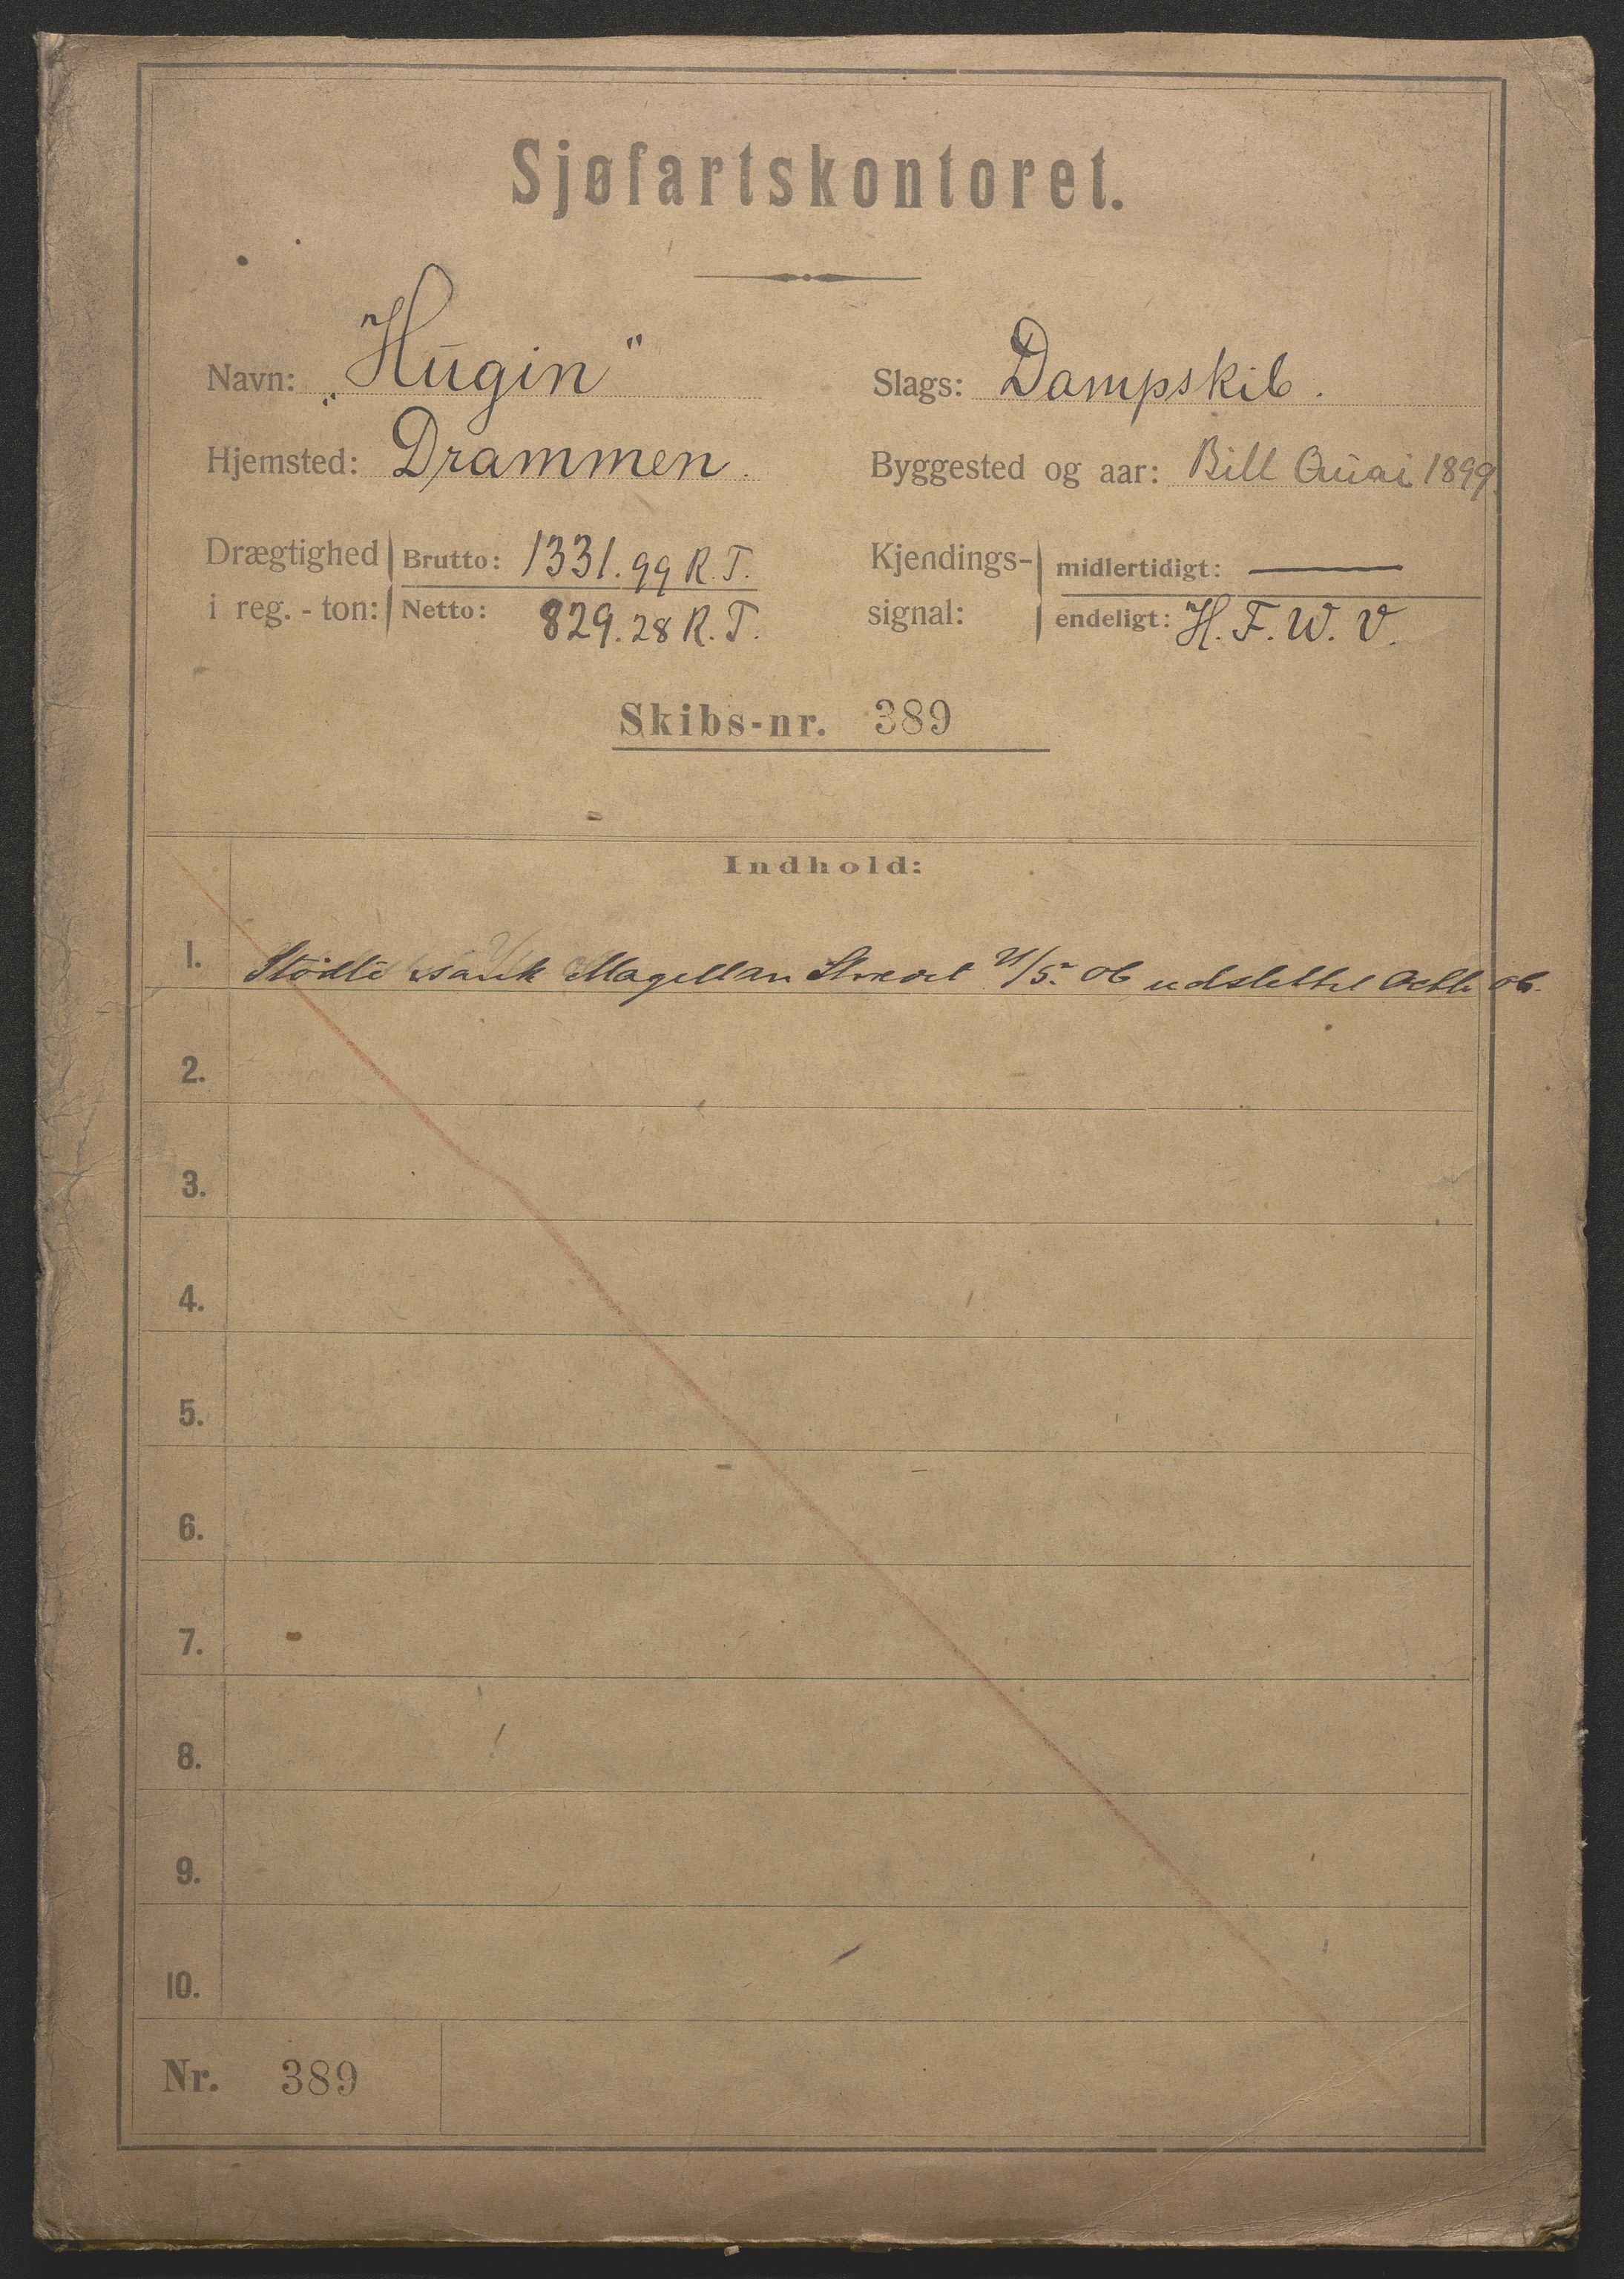 Sjøfartskontoret.
Navn: „Hugin“
Slags: Dampskib.
Hjemsted: Drammen.
Byggested og aar: Bill Quai 1899.
Drægtighed i reg.-ton: Brutto: 1331.99 R.T.
Netto: 829.28 R.T.
Kjendings-signal: midlertidigt: —
endeligt: H.F.W.V.
Skibs-nr. 389
Indhold:
1. Stødte sank Magellan Strædet 21/5. 06 udslettet Octb 06.
2.
3.
4.
5.
6.
7.
8.
9.
10.
Nr. 389